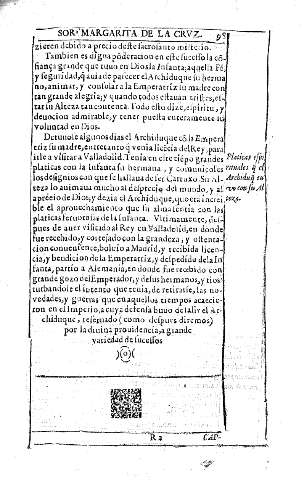 SOR MARGARITA DE LA CRVZ. 98
zieren debido a precio deste sacrosanto misterio.
Tambien es digna põderacion en este sucesso la cõ-
fiança grande que tuuo en Dios la Infanta; aquella Fè,
y seguridad, q̃ auia de parecer el Archiduque su herma
no, animar, y consolar a la Emperatriz su madre con
tan grande alegria; y quando todos estauan tristes, es-
tar su Alteza tan contenta. Todo esto dize, espiritu, y
deuocion admirable, y tener puesta enteramente su
voluntad en Dios.
Detuuose algunos dias el Archiduque cõ la Empera
triz su madre, entretanto q̃ venia licẽcia del Rey, para
irle a visitar a Valladolid. Tenia en este tiẽpo grandes
platicas con la Infanta su hermana, y comunicoles
los designios con que le hallaua de ser Cartuxo. Su Al-
teza lo animaua mucho al desprecio del mundo, y al
aprecio de Dios, y dezia el Archiduque, que era increi
ble el aprouechamiento que su alma sentia con las
platicas feruorosas de la Infanta. Vltimamente, des-
pues de auer visitado al Rey en Valladolid, en donde
fue recebido, y cortejado con la grandeza, y ostenta-
cion conueniente, boluio a Madrid, y recibida licen-
cia, y bendicion de la Emperatriz, y despedido de la In
fanta, partio a Alemania, en donde fue recebido con
grande gozo del Emperador, y de sus hermanos, y tios
turbandole el intento que tenia, de retirarse, las no-
uedades, y guerras que en aquellos tiempos acaecie-
ron en el Imperio, a cuya defensa huuo de salir el Ar-
chiduque, reseruado (como despues diremos)
por la diuina prouidencia, a grande
variedad de sucessos
)(o)(
Platicas espi-
rituales q̃ el
Archiduq̃ tu
vo con su Al
teza.
R 2 CAP-